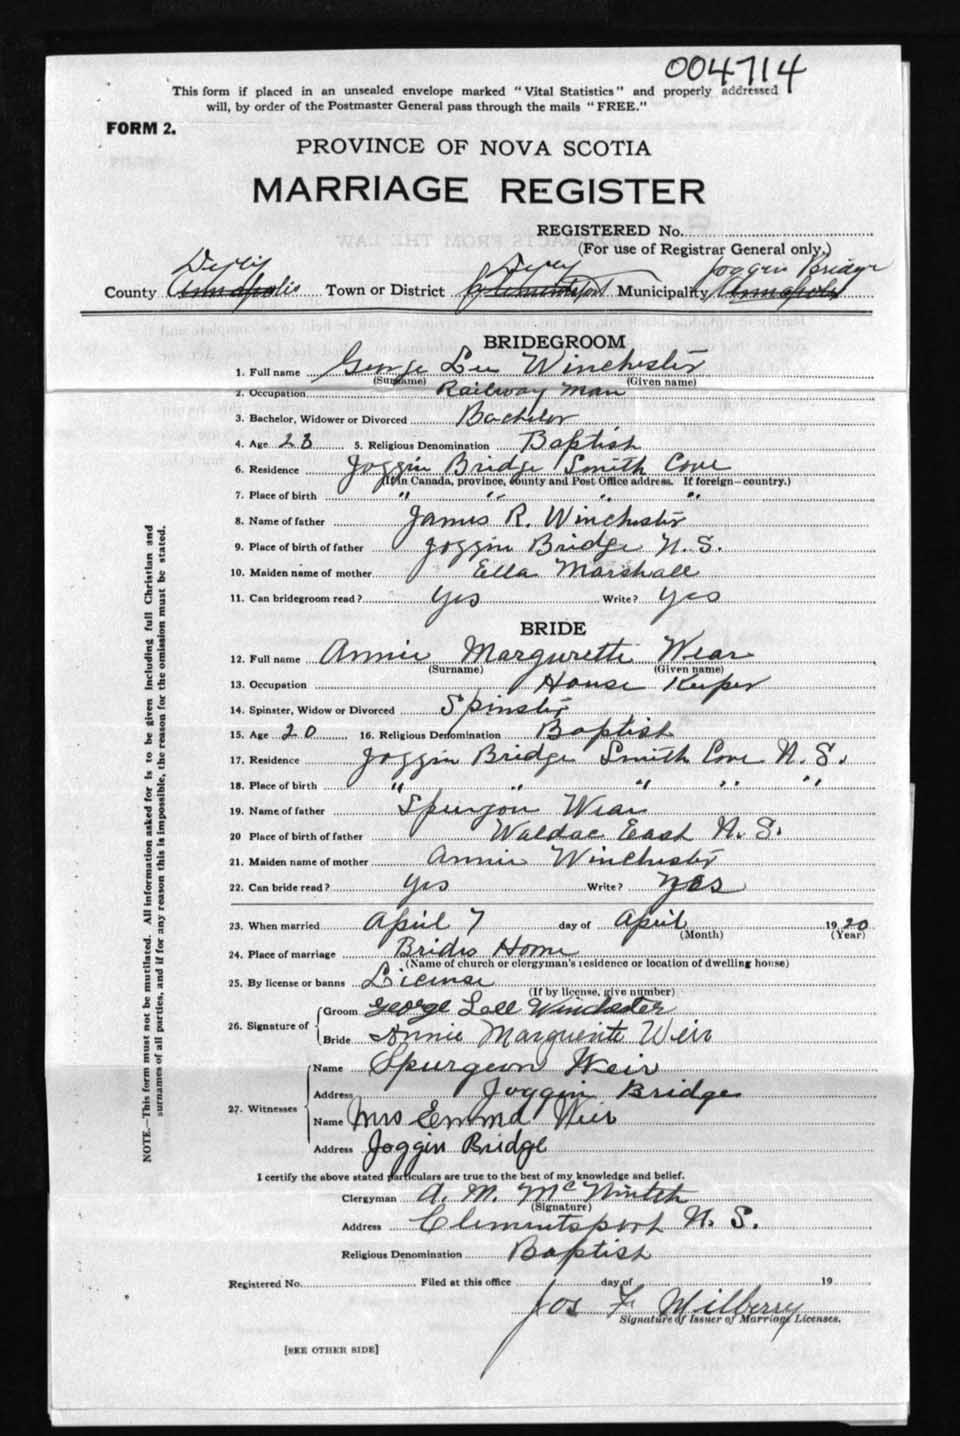 004714
This form if placed in an unsealed envelope marked "Vital Statistics" and properly addressed
will, by order of the Postmaster General pass through the mails "FREE."
FORM 2.
PROVINCE OF NOVA SCOTIA
MARRIAGE REGISTER
REGISTERED No.
(For use of Registrar General only.)
Digby Digby Joggin Bridge
County Annapolis Town or District Clementsport Municipality Annapolis
BRIDEGROOM
1. Full name George Lee Winchester
(Surname) (Given name)
2. Occupation Railway Man
3. Bachelor, Widower or Divorced Bachelor
4. Age 28 5. Religious Denomination Baptish
6. Residence Joggin Bridge Smith Cove
(If in Canada, province, county and Post Office address. If foreign—country.)
7. Place of birth " " " "
8. Name of father James R. Winchester
9. Place of birth of father Joggin Bridge N. S.
10. Maiden name of mother Ella Marshall
11. Can bridegroom read? Yes Write? Yes
BRIDE
12. Full name Annie Margurette Wear
(Surname) (Given name)
13. Occupation House Keeper
14. Spinster, Widow or Divorced Spinster
15. Age 20 16. Religious Denomination Baptish
17. Residence Joggin Bridge Smith Cove N. S.
18. Place of birth " " " " "
19. Name of father Spurgon Wear
20 Place of birth of father Waldac East N. S.
21. Maiden name of mother Annie Winchester
22. Can bride read? Yes Write? Yes
23. When married April 7 day of April 1920
(Month) (Year)
24. Place of marriage Brides Home
(Name of church or clergyman's residence or location of dwelling house)
25. By license or banns License
(If by license, give number)
26. Signature of Groom George Lee Winchester
Bride Annie Marguerite Weir
27. Witnesses Name Spurgeon Weir
Address Joggin Bridge
Name Mrs Emma Weir
Address Joggin Bridge
I certify the above stated particulars are true to the best of my knowledge and belief.
Clergyman A. M. McNintch
(Signature)
Address Clementsport N. S.
Religious Denomination Baptish
Registered No. Filed at this office day of 19
Jos F Milberry
Signature of Issuer of Marriage Licenses.
[SEE OTHER SIDE]
NOTE.—This form must not be mutilated. All information asked for is to be given including full Christian and
surnames of all parties, and if for any reason this is impossible, the reason for the omission must be stated.